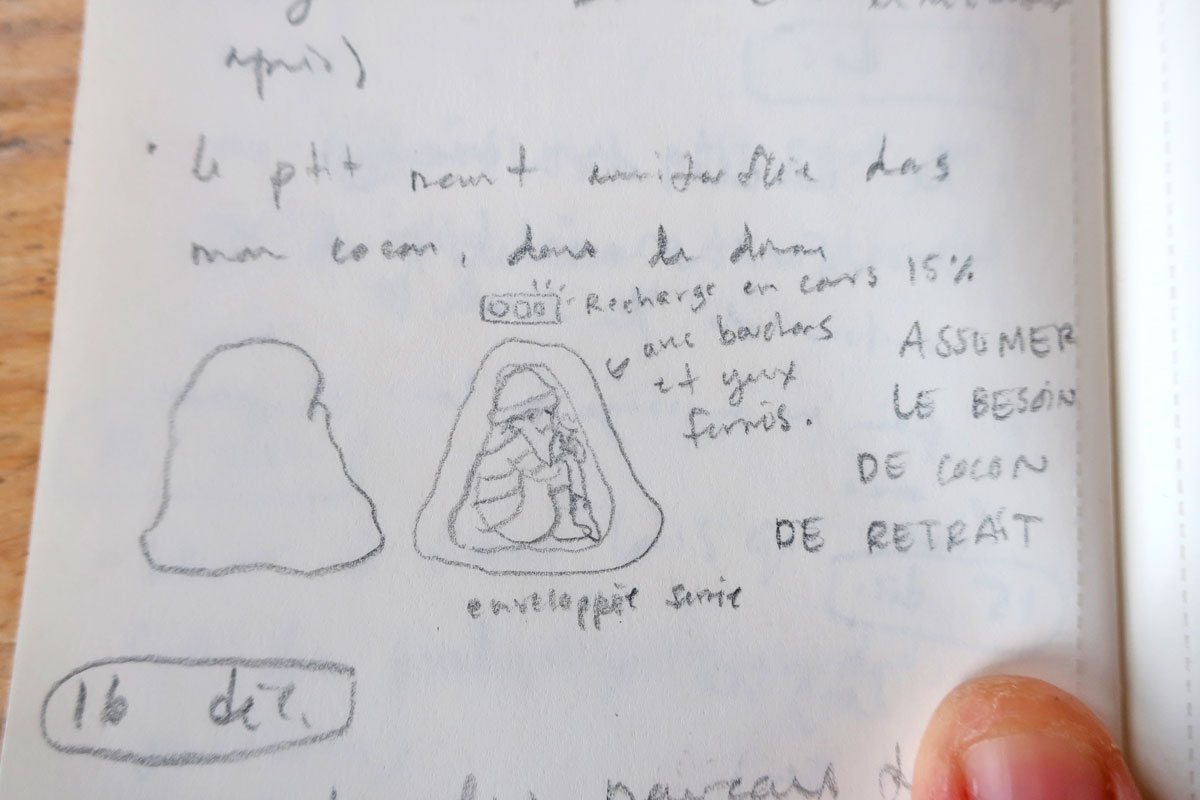 après)
· le ptit moment emmitouflée dans
mon cocon, dans le divan
Recharge en cours 15%
avec bouchons
et yeux
fermés.
ASSUMER
LE BESOIN
DE COCON
DE RETRAIT
enveloppée serrée
16 déc.